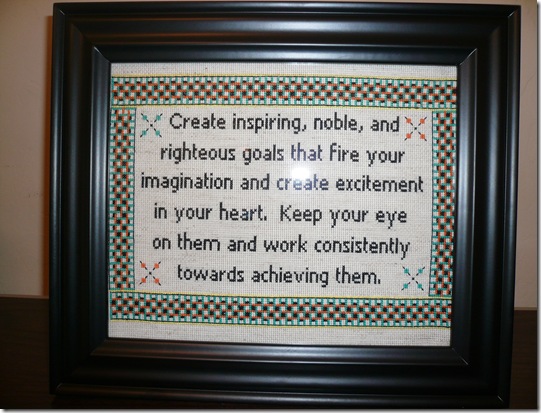 Create inspiring, noble, and
righteous goals that fire your
imagination and create excitement
in your heart. Keep your eye
on them and work consistently
towards achieving them.